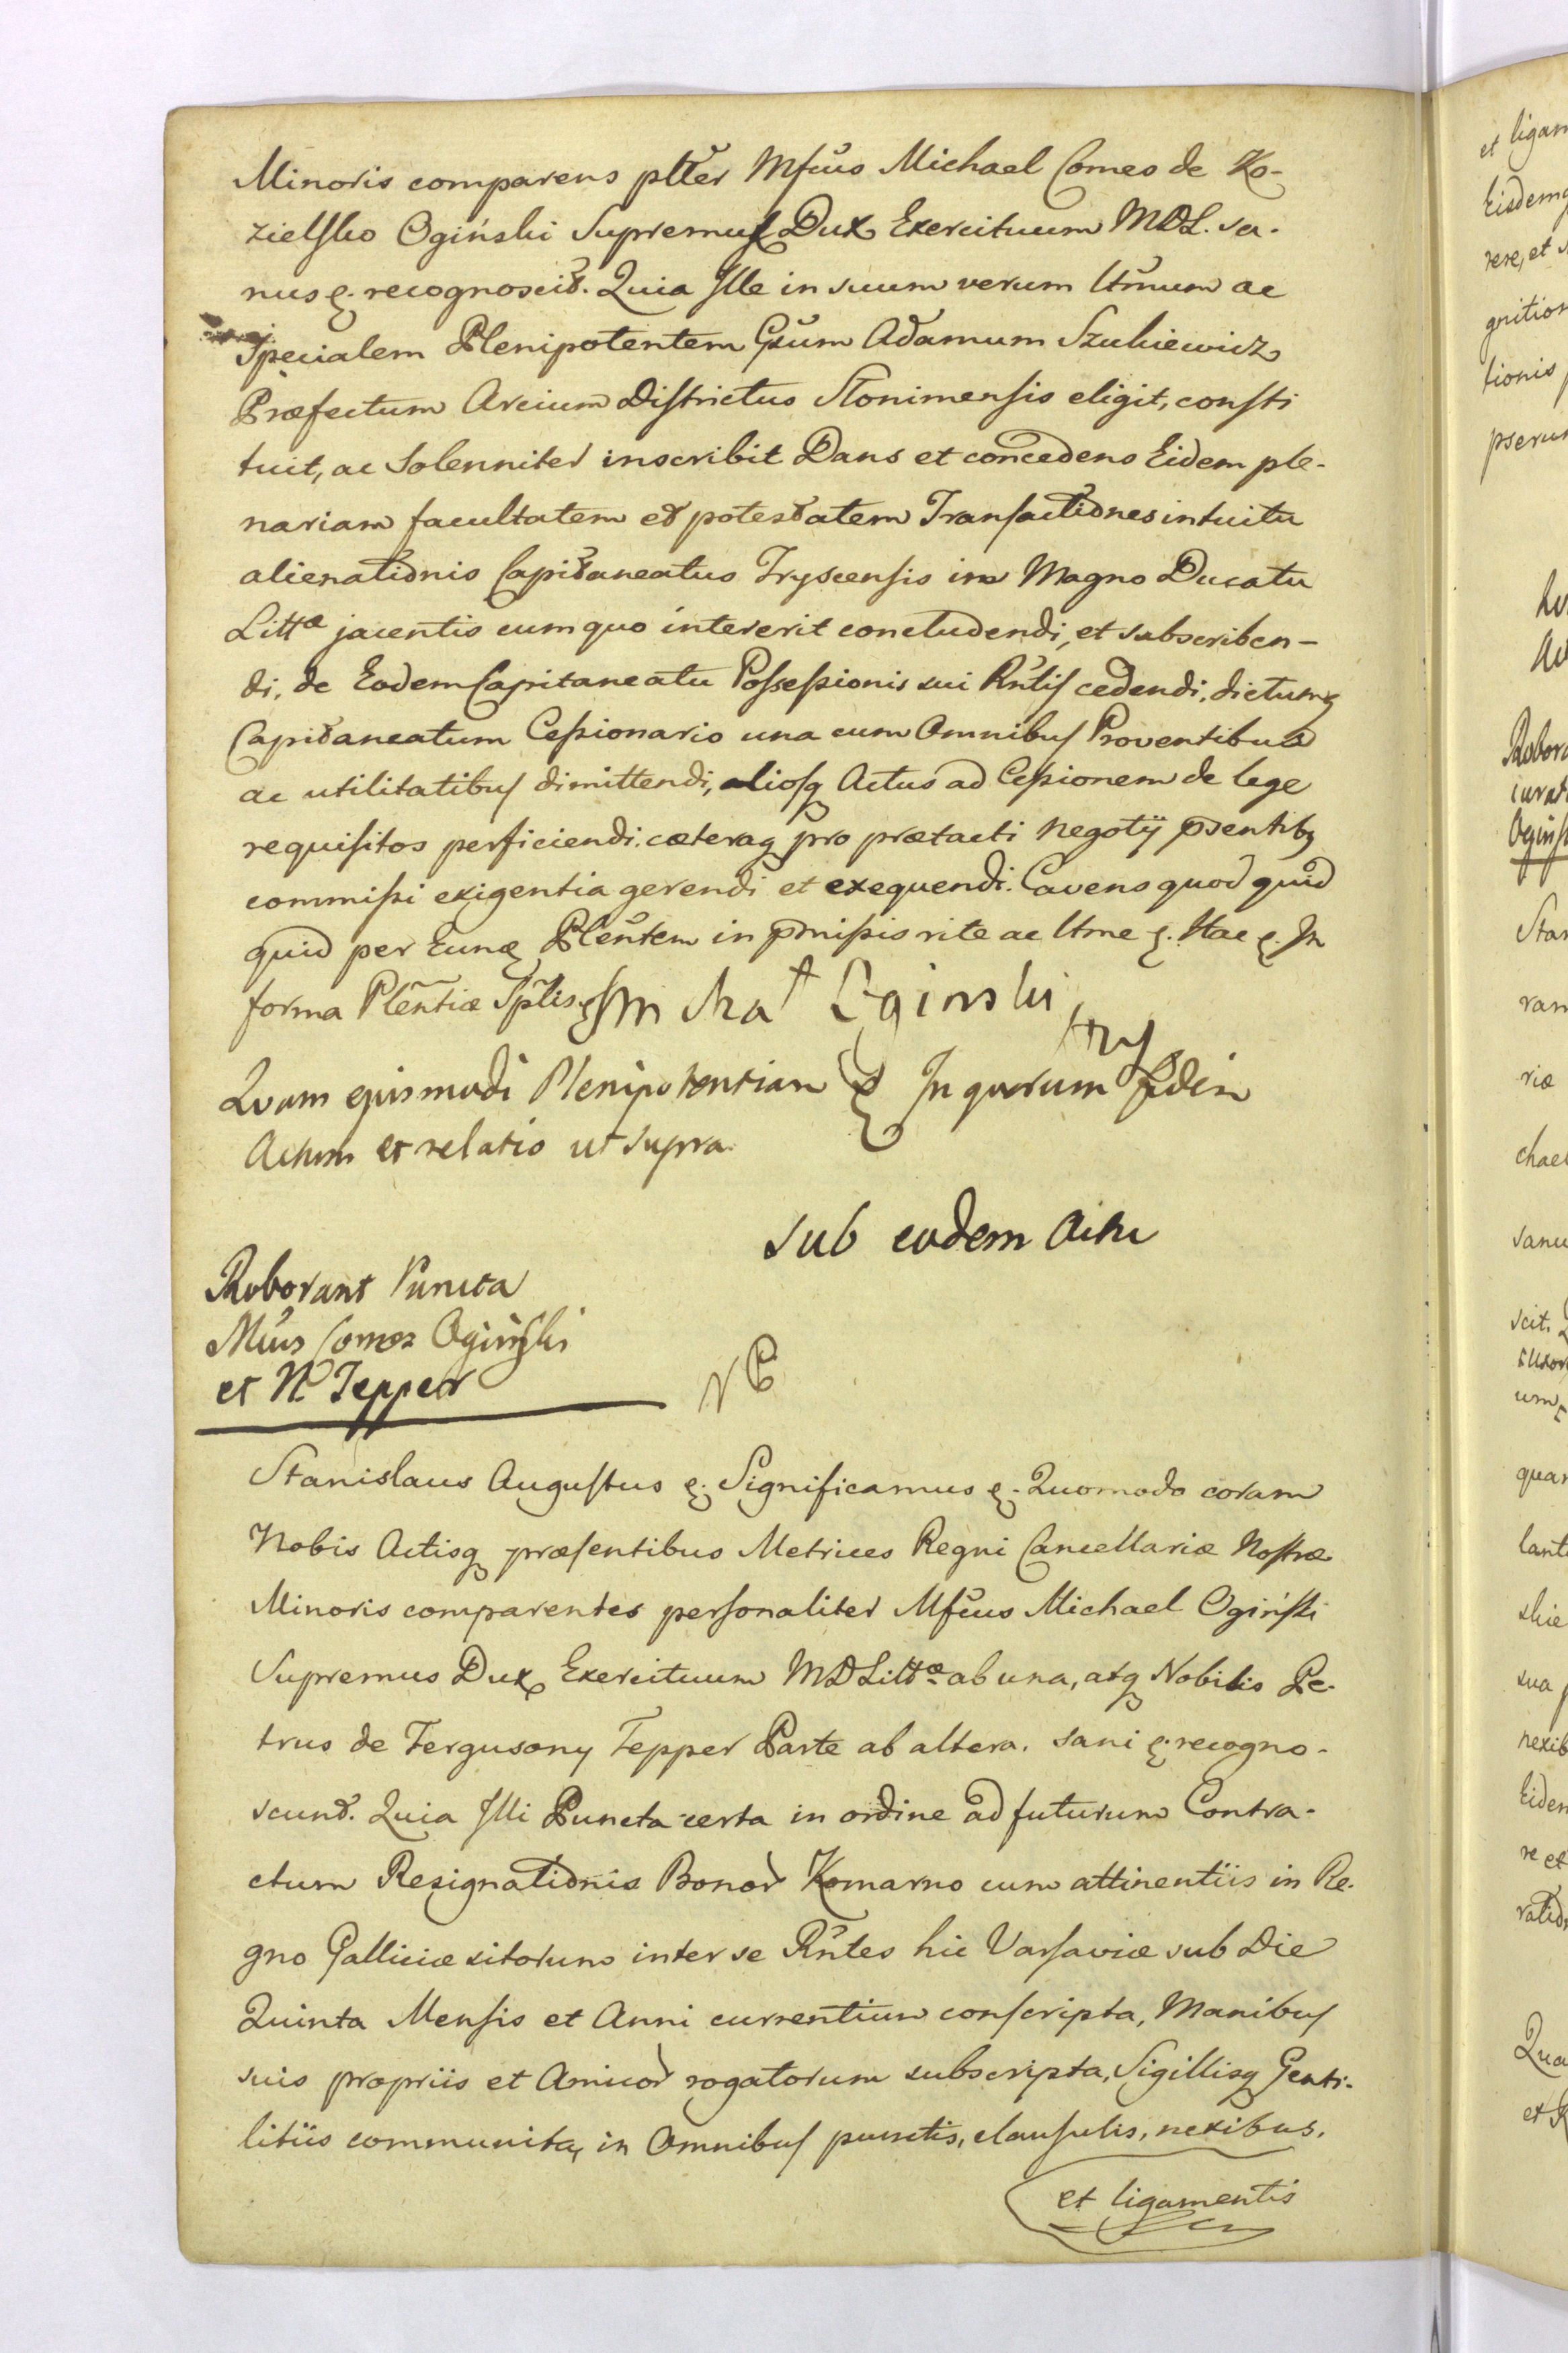 Minoris comparens pltter Mfcus Michael Comes de Ko-
zielsko Ogiński Supremus Dux Exercituum MDL. sa-
nus &. recognoscit. Quia Ille in suum verum ltmum ac
Specialem Plenipotentem Gsum Adamum Szukiewicz
Præfectum Arcium Districtus Słonimensis eligit, consti
tuit, ac Solenniter inscribit Dans et concedens Eidem ple-
nariam facultatem et potestatem Transactiones intuitu
alienationis Capitaneatus Tryscensis in Magno Ducatu
Littæ jacentis cum quo intererit concludendi, et subscriben-
di, de Eodem Capitaneatu Possessionis sui Rntis cedendi, dictumq
Capitaneatum Cessionario una cum Omnibus Proventibus
ac utilitatibus dimittendi, aliosq Actus ad Cessionem de lege
requisitos perficiendi. cæteraq pro prætacti negotij psentibq
commissi exigentia gerendi et exequendi. Cavens quod quid
quid per Eunq Plentem in pmissis rite ac ltme &. Hac &. In
forma Plentiæ Splis &. Oginski
Quam ejusmodi Plenipotentiam & In quorum fidem
Actum et relatio ut supra.
Sub eodem Actu
Roborant Puncta
Mcus Comes Ogiński
et N. Tepper
Stanislaus Augustus &. Significamus &. Quomodo coram
Nobis Actisq præsentibus Metrices Regni Cancellariæ Nostræ
Minoris comparentes personaliter Mfcus Michael Ogiński
Supremus Dux Exercituum MDLittæ ab una, atq Nobilis Pe-
trus de Fergusony Tepper Parte ab altera. sani &. recogno-
scunt. Quia Illi Puncta certa in ordine ad futurum Contra-
ctum Resignationis Bonor Komarno cum attinentiis in Re-
gno Galliciæ sitorum inter se Rntes hic Varsaviæ sub Die
Quinta Mensis et Anni currentium conscripta, Manibus
suis propriis et Amicor rogatorum subscripta, Sigillisq Genti-
litiis communita, in Omnibus punctis, clausulis, nexibus,
et ligamentis